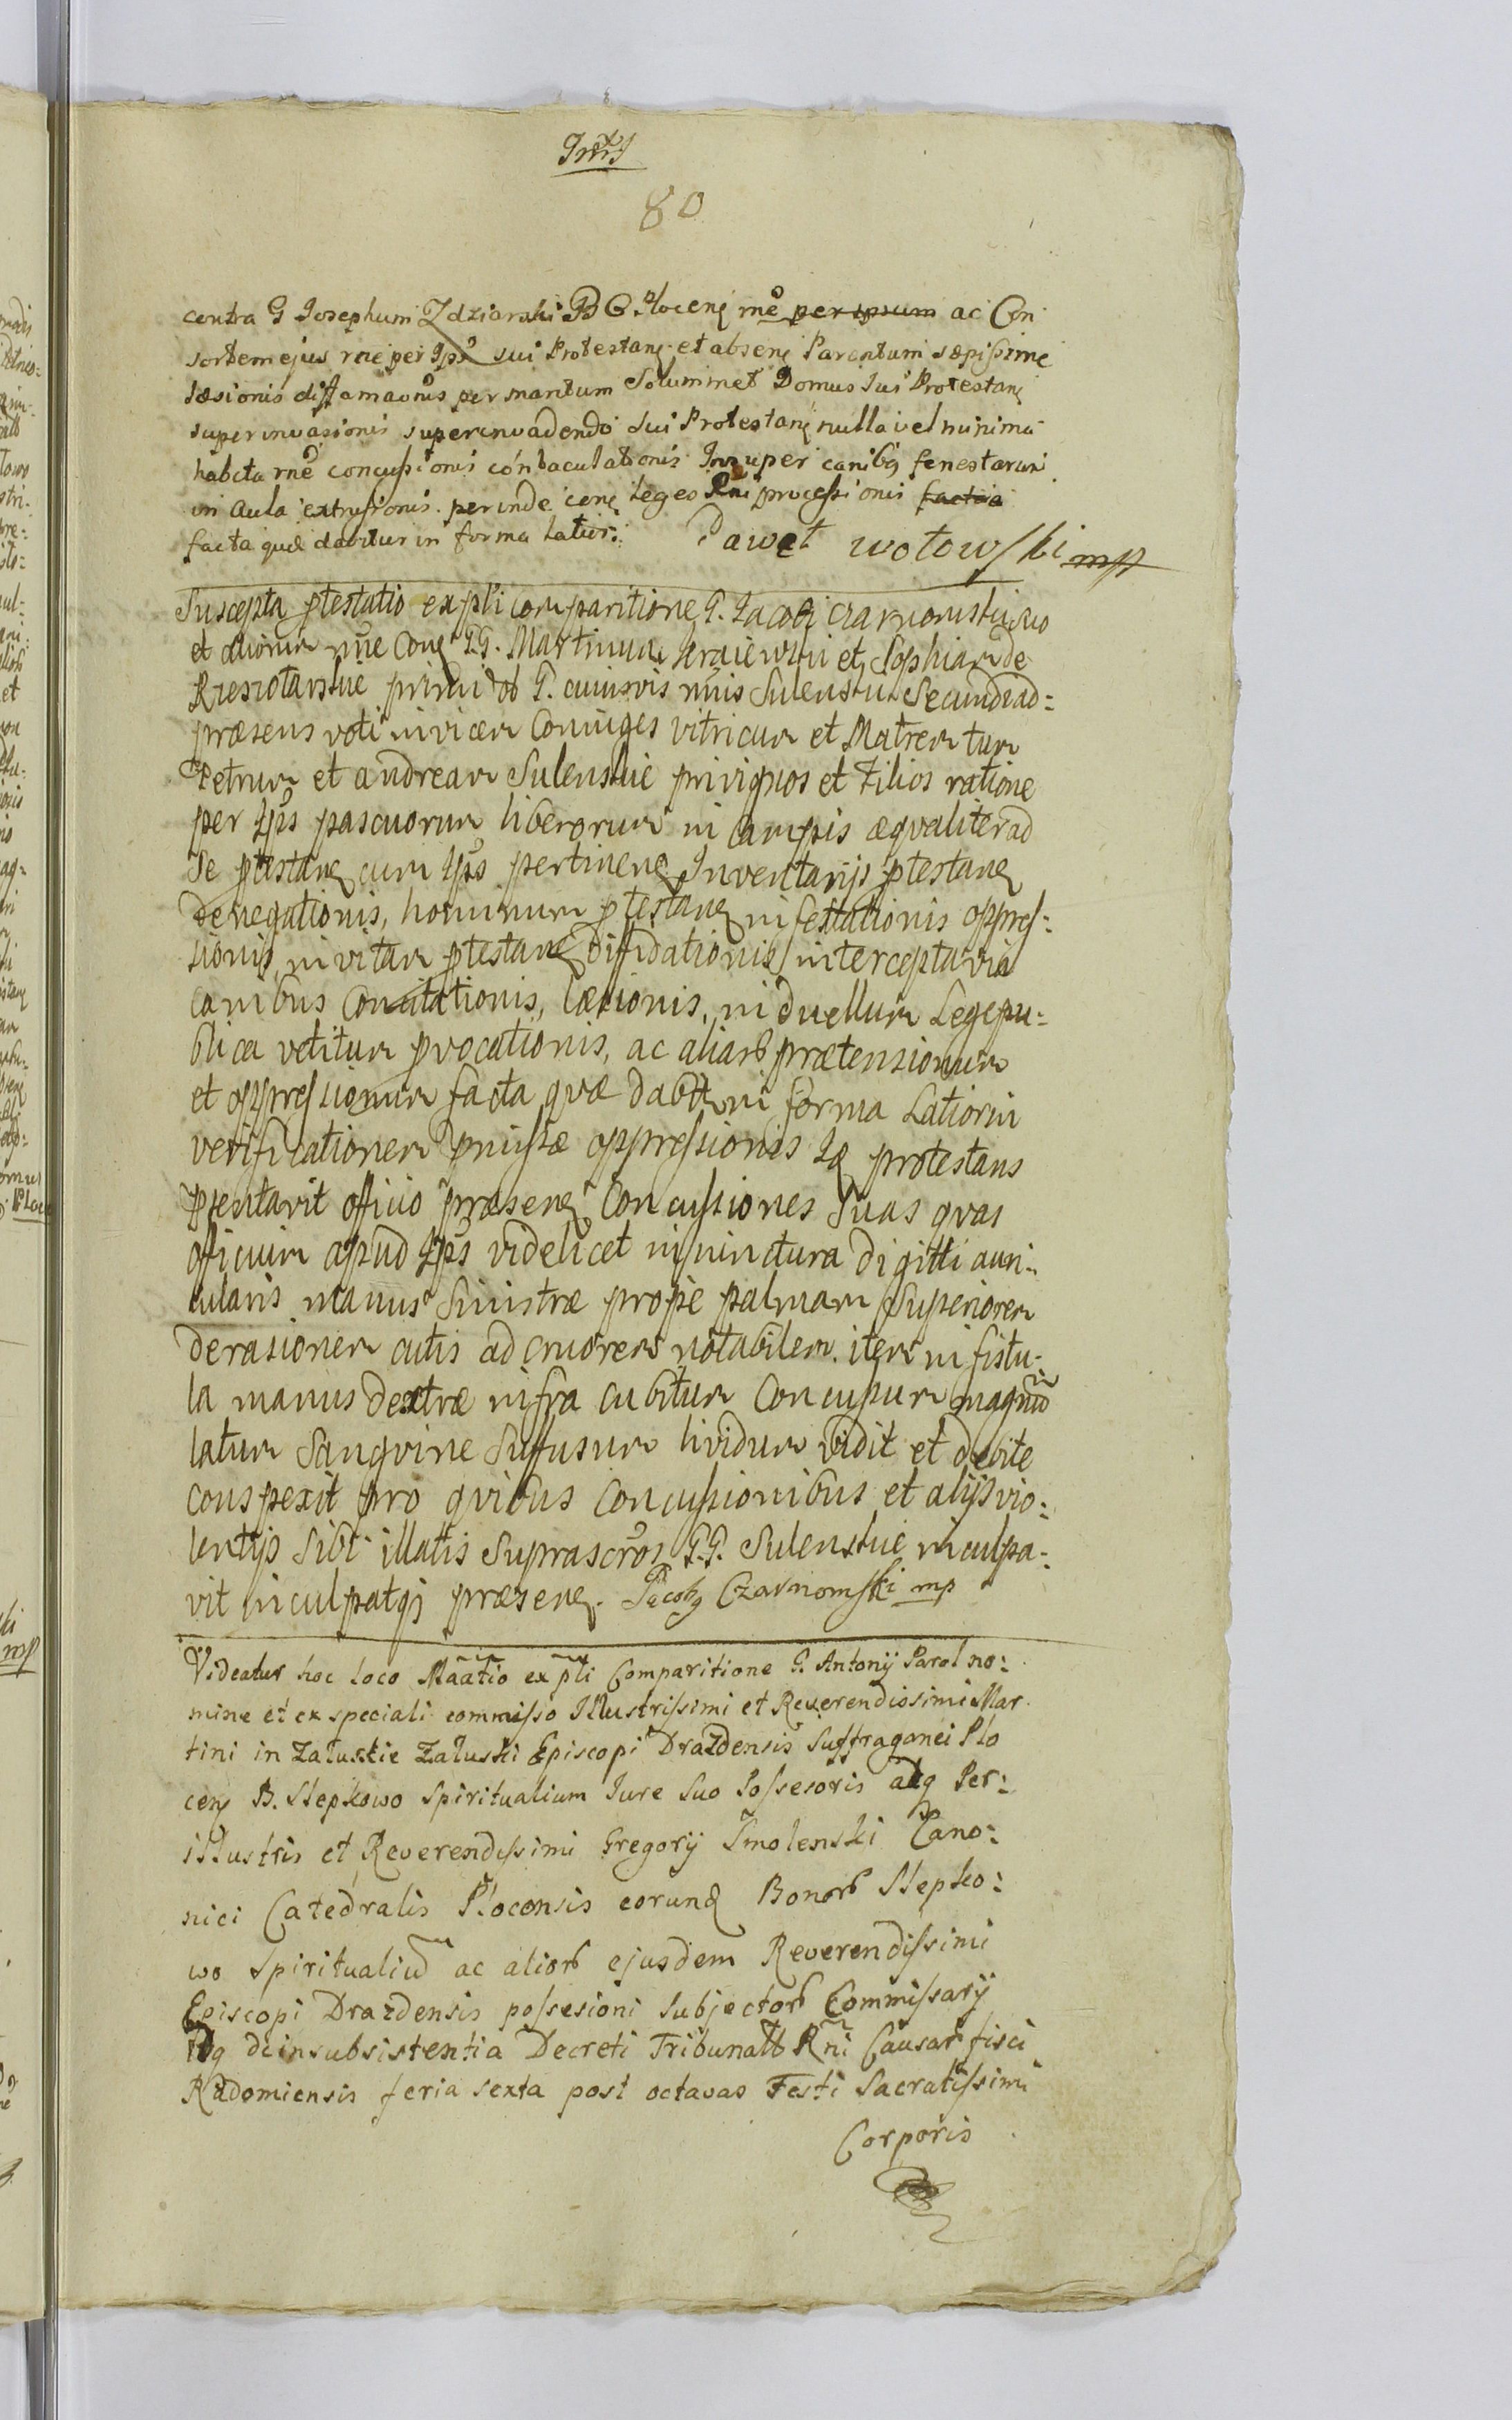 80
contra G Josephum Zdziarski B C Plocen rne per ipsum ac Con
sortem ejus rne per Ips sui Protestan et absen Parentum sæpissime
læsionis diffamaonis per maritum Solummet Domus sui Protestan
superinvasionis superinvadendo sui Protestan nulla vel minima
habita rne concussionis conbaculationis Insuper canibq fenestarum
in Aula extrusionis perinde leges Rni processionis factia
facta quæ dabitur in forma latiori Paweł wołowski mp
Suscepta ptestatio ex pli comparitione G. Jacobi Czarnomski suo
et aliorum nne Con G.G. Martinum et Sophiam de
primi G. cuiusvis nnis Sulenski Secundi ad=
præsens voti invicem Coniuges vitricum et Matrem tum
Petrum et Andream Sulenskie privignos et Filios ratione
per Ips pascuorum liberorum in Campis æqvaliter ad
Se ptestan cum Ips pertinen Inventarijs ptestan
denegationis, hominum ptestan infestationis oppres=
sionis, in vitam ptestan diffidationis intercepta via
Canibus Concitationis, læsionis, in duellum Lege pu=
blica vetitum pvocationis, ac aliarb prætensionum
et oppressionum facta qvæ dabit in forma Latiori in
verificationem pmissæ oppressionis Iq protestans
pſentavit officio præsen Concussiones Suas qvas
officium apud Ips videlicet in iunctura digitti auri=
cularis manus Sinistræ prope palmam Superiorem
derasionem cutis ad cruorem notabilem item in fistu=
la manus dextræ infra cubitum Concussum magnum
latum Sangvine Suffusum lividum vidit et debite
conspexit pro qvibus Concussionibus et alijs vio=
lentijs Sibi illatis Suprascros G.G. Sulenskie inculpa=
vit inculpatqj præsen. Jacobq Czarnomski mp
Videatur hoc loco Maatio ex pti Comparitione G. Antonij Parol no=
mine et ex speciali commisso Illustrissimi et Reverendissimi Mar
tini in Załuskie Załuski Episcopi Drazdensis Suffraganei Plo
cen B. Slepkowo Spiritualium Jure Suo Possesoris atq Per=
illustris et Reverendissimi Gregorij Smolenski Cano=
nici Catedralis Plocensis eorund Bonorb Slepko=
wo Spiritualiu ac aliorb ejusdem Reverendissimi
Episcopi Drazdensis possesioni Subjectorb Commissarij
Idq de insubsistentia Decreti Tribunalb Rni Causar fisci
Radomiensis feria sexta post octavas Festi Sacratissimi
Corporis